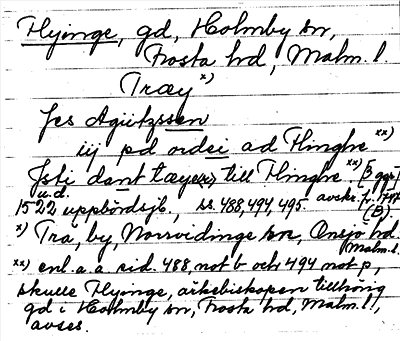 Flyinge, gd, Holmby sn,
Frosta hd, Malm. l.
Træy x)
Jes Agiitzssen
iij pd ordei ad Flinghe xx)
Jsti dant tæyer, till Flinghe xx) [5 ggr]
u.d.
1522 uppbördsjb., ss. 488, 494, 495 avskr. fr. 1717
(B)
x) Trä, by, Norrvidinge sn, Onsjö hd
Malm. l.
xx) enl. a.a sid. 488, not b och 494 not p,
skulle Flyinge, ärkebiskopen tillhörig
gd i Holmby sn, Frosta hd, Malm. l.,
avses.